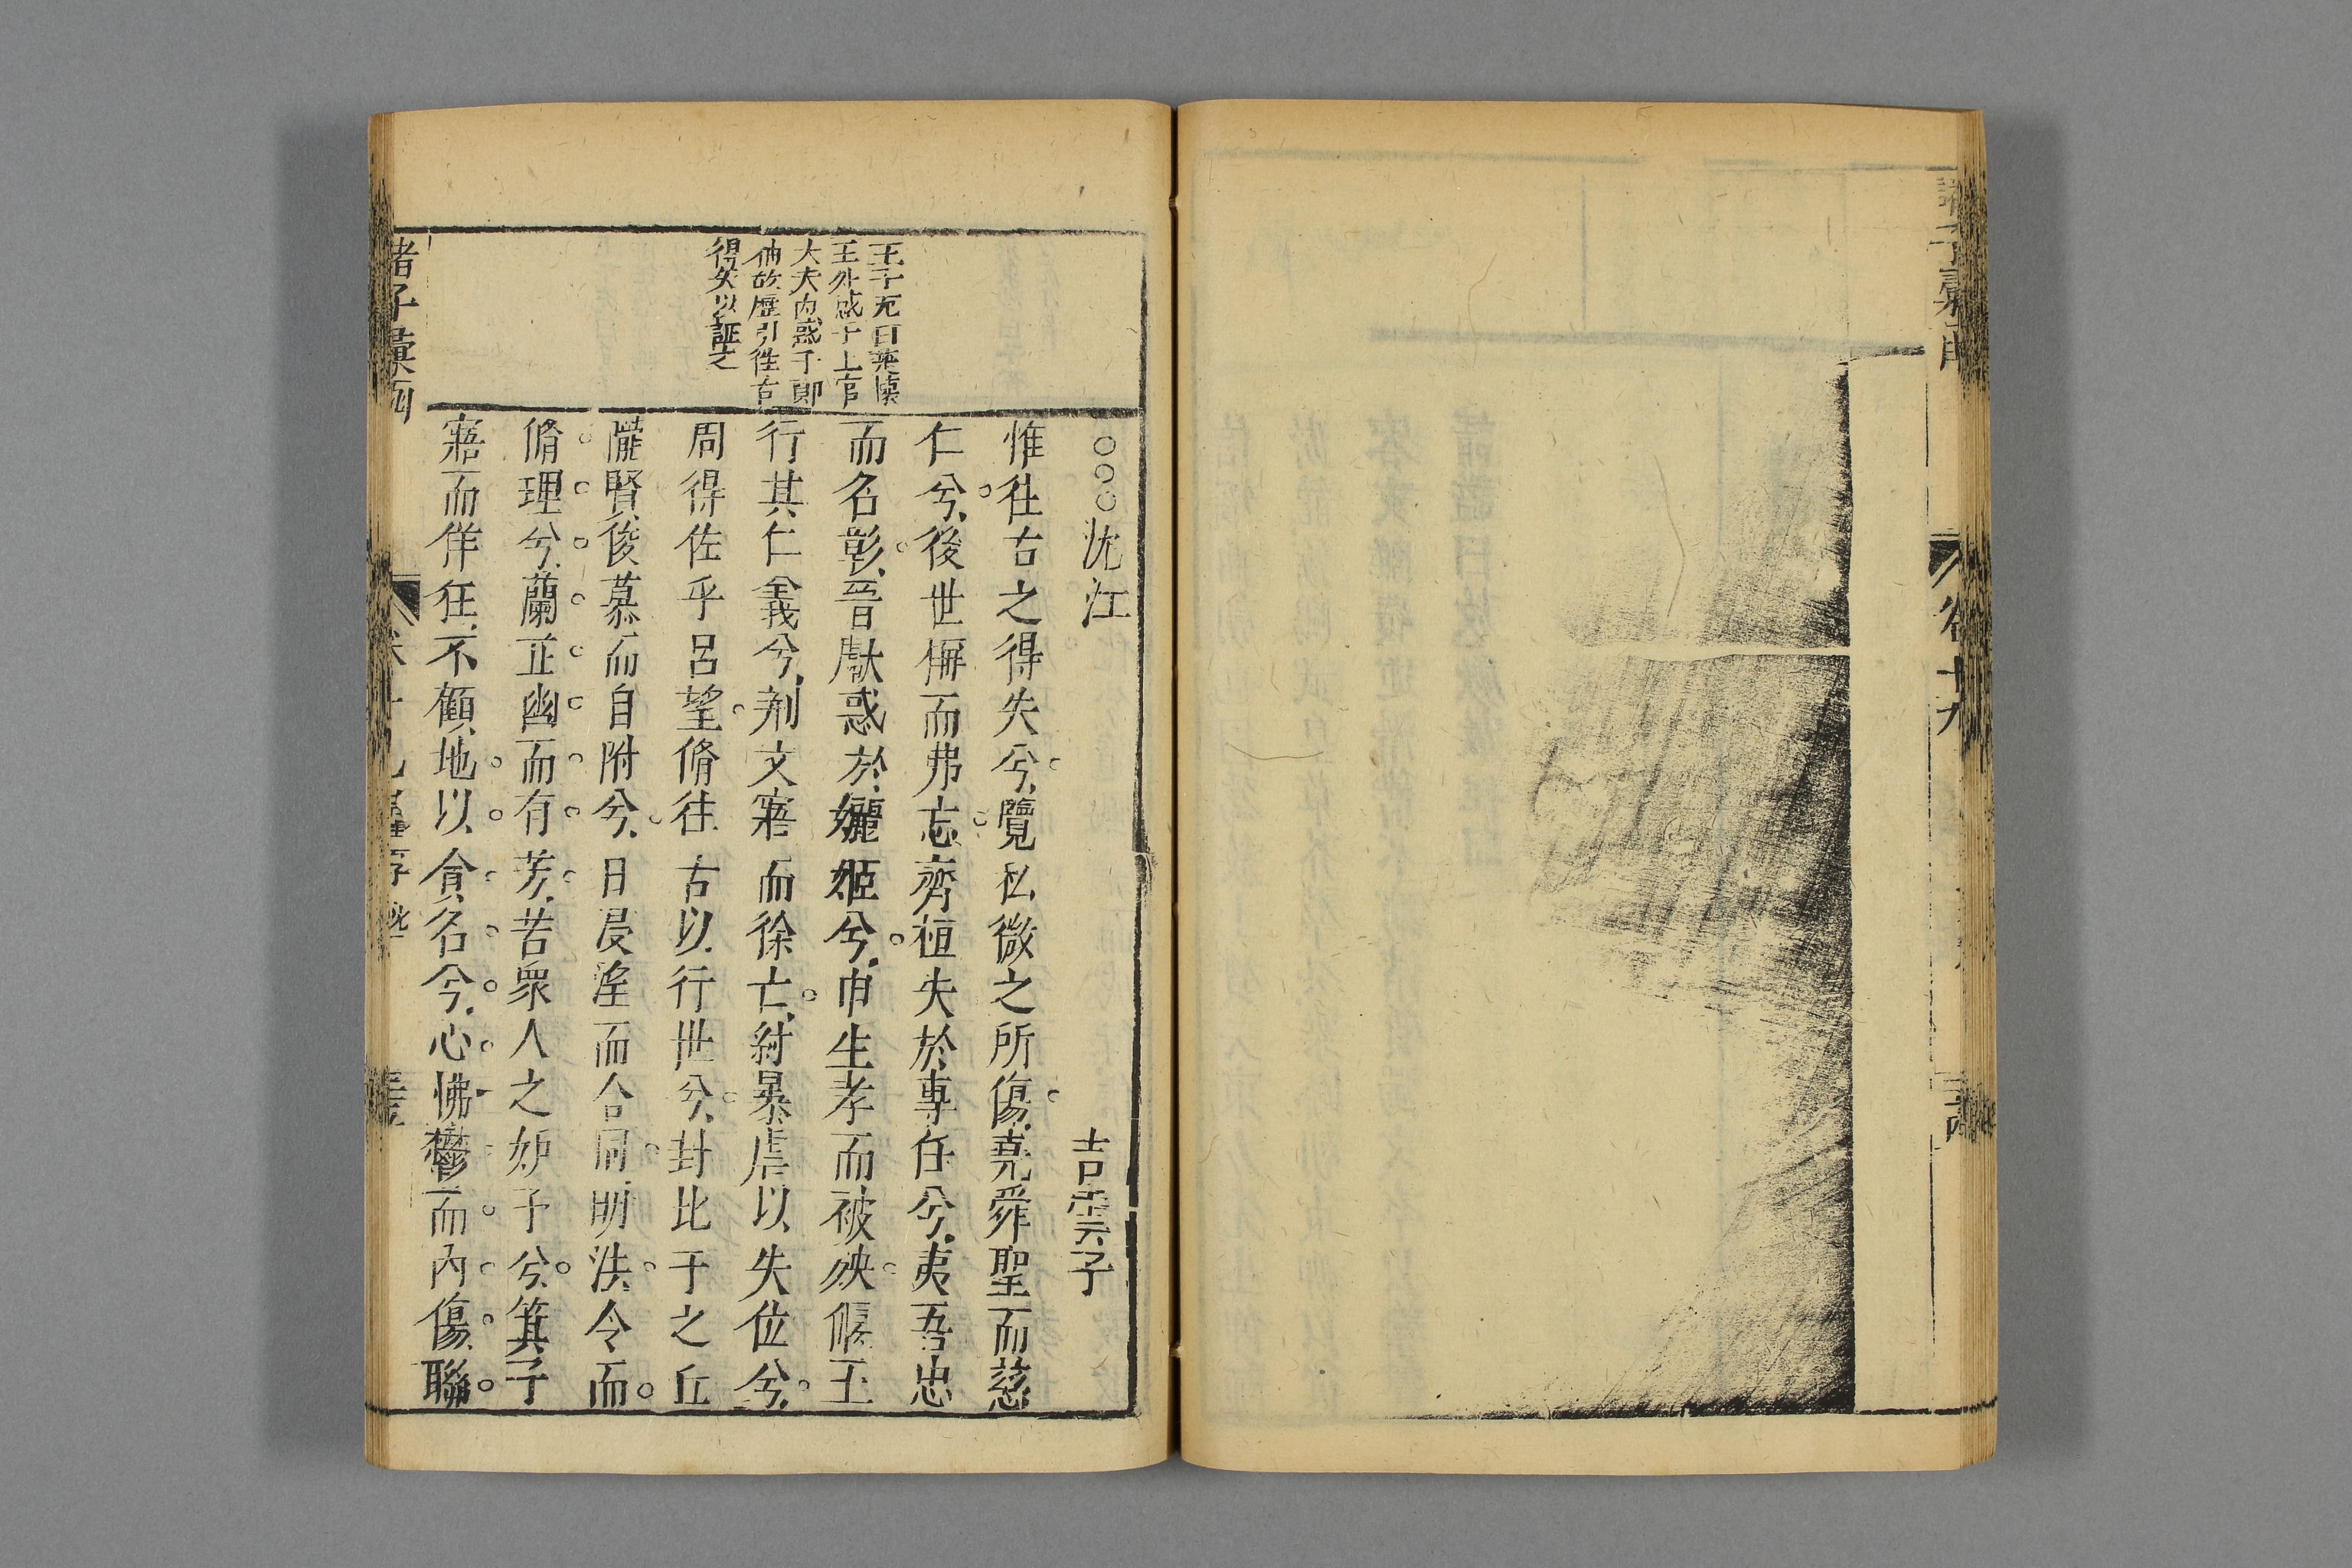 諸子彙函
卷十九
王子充曰蓋懷
王外惑于上官
大夫內惑于鄭
袖故歷引徃古
得失以証之
○○○沈江
吉雲子
惟徃古之得失兮覽私微之所傷堯舜聖而慈
仁兮後世稱而弗忘齊桓失於專任兮夷吾忠
而名彰晉獻惑於孋姬兮申生孝而被殃偃王
行其仁義兮荆文寤而徐亡紂暴虐以失位兮
周得佐乎呂望脩往古以行世兮封比干之丘
隴賢俊慕而自附兮日浸淫而合同明法令而
脩理兮蘭芷幽而有芳苦衆人之妒予兮箕子
寤而佯狂不顧地以貪名兮心怫鬱而內傷聯
諸子彙函